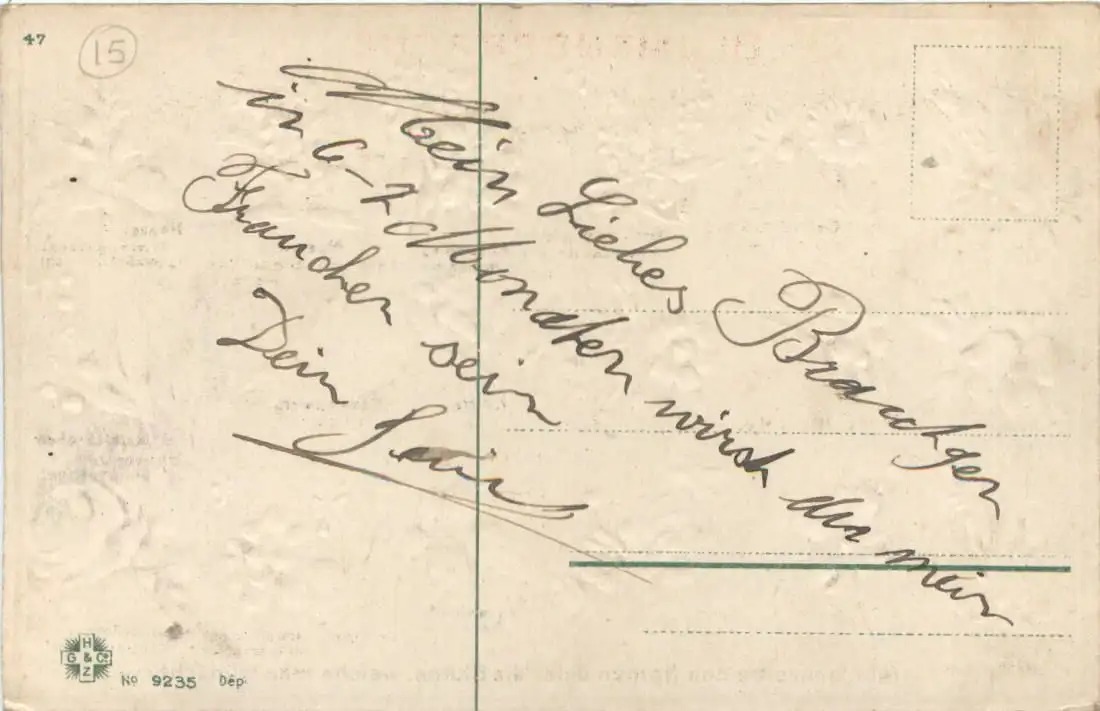 47
15
Mein Liebes Brautchen
in 6-7 Monaten wirst du mein
Frauchen sein
Dein
H
G & Co
Z
No 9235 Dép.